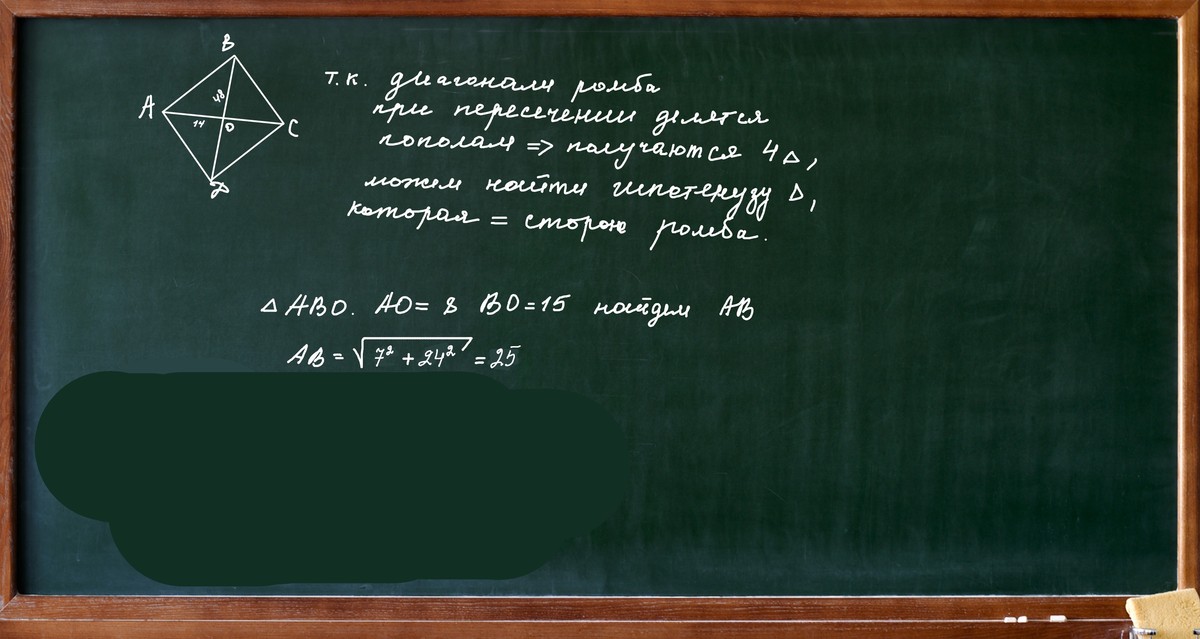 B
A
48
14
O
C
D
т.к. диагонали ромба
при пересечении делятся
пополам => получаются 4△,
можем найти гипотенузу △,
которая = стороне ромба.
△ ABO. AO = 8 BO = 15 найдем AB
AB = √7² + 24² = 25